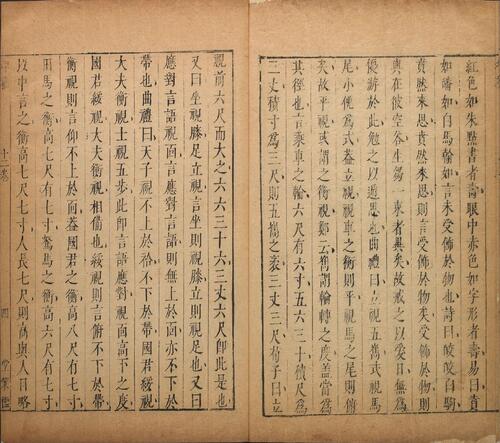 紅色如朱點書者壽眼中赤色如字形者壽易曰賁
如皤如白馬翰如言未受飾於物也詩曰皎皎白駒
賁然來思賁然來思則言受飾於物矣受飾於物則
與在彼空谷生芻一束者異矣故戒之以日無為
優游於此勉之以遁思也曲禮曰立視五巂式視馬
尾小俛為式蓋立視視車之衡則平視馬之尾則俯
矣故平視或謂之衡視鄭云巂謂輪轉之度蓋當為
其徑也言乘車之輪六尺有六寸五六三十積尺為
三丈積寸為三尺則五巂之袤三丈三尺荀子曰立
視前六尺而大之六六三十六三丈六尺即此是也
又曰坐視膝足立視言坐則視膝立則視足也又曰
應對言語視面言應對言語則無上於面亦不下於
帶也曲禮曰天子視不上於袷不下於帶國君綏視
大夫衡視士視五步此即言語應對視向高下之度
國君綏視大夫衡視相備也綏視則言俯不下於帶
衡視則言仰不上於面蓋國君之衡高八尺有七寸
田馬之衡高七尺有七寸駑馬之衡高六尺有七寸
故中言之衡高七尺七寸人長七尺則高與人目略
十二卷
四